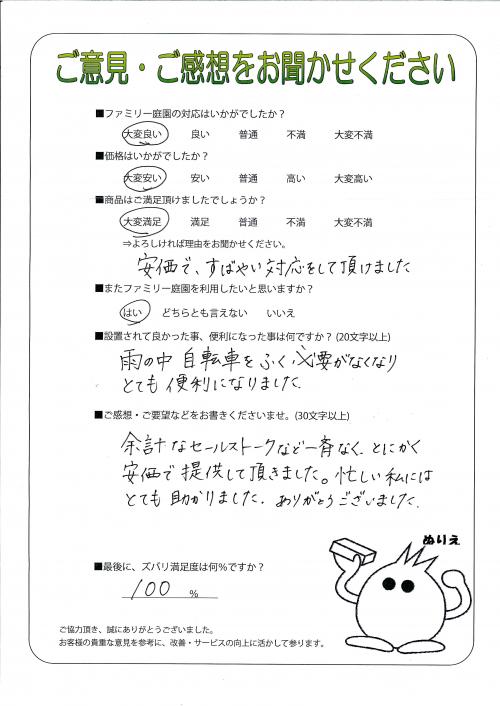 ご意見・ご感想をお聞かせください
■ファミリー庭園の対応はいかがでしたか？
大変良い 良い 普通 不満 大変不満
■価格はいかがでしたか？
大変安い 安い 普通 高い 大変高い
■商品はご満足頂けましたでしょうか？
大変満足 満足 普通 不満 大変不満
⇒よろしければ理由をお聞かせください。
安価で、すばやい対応をして頂けました
■またファミリー庭園を利用したいと思いますか？
はい どちらとも言えない いいえ
■設置されて良かった事、便利になった事は何ですか？(20文字以上)
雨の中 自転車をふく必要がなくなり
とても便利になりました.
■ご感想・ご要望などをお書きくださいませ。(30文字以上)
余計なセールストークなど一斉なく、とにかく
安価で提供して頂きました。忙しい私には
とても助かりました. ありがとうございました.
ぬりえ
■最後に、ズバリ満足度は何%ですか？
100 %
ご協力頂き、誠にありがとうございました。
お客様の貴重な意見を参考に、改善・サービスの向上に活かして参ります。